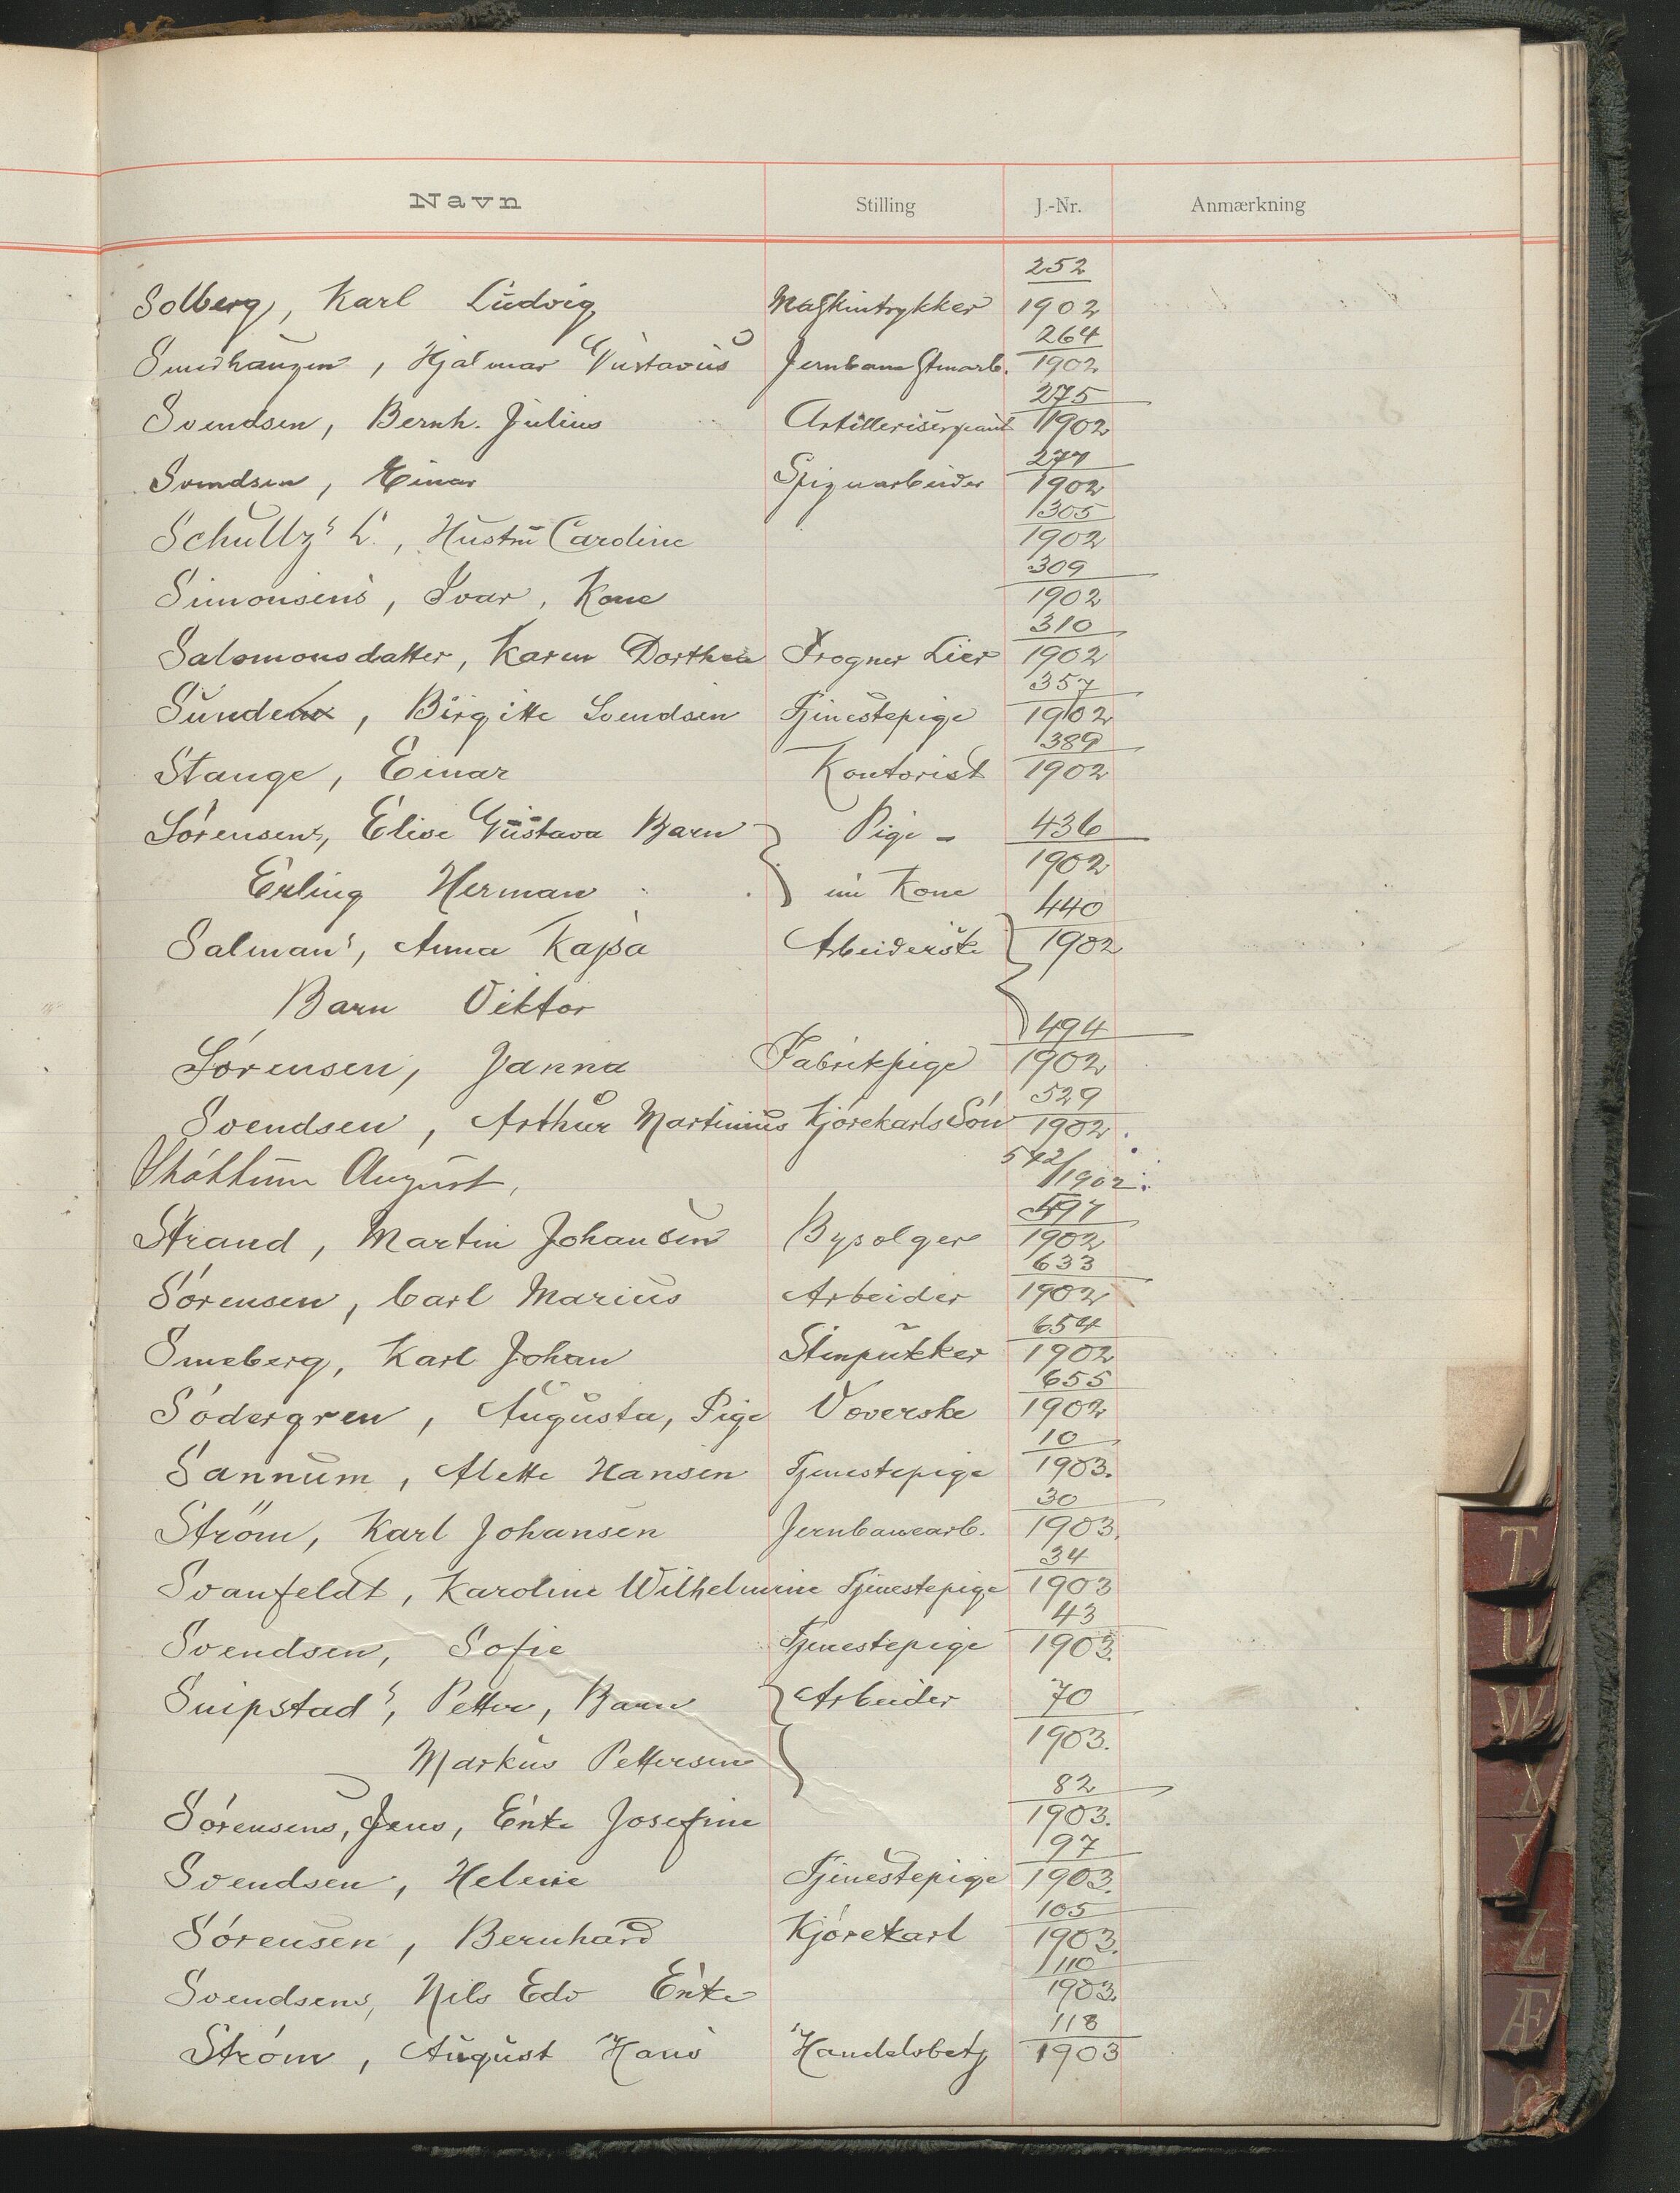 Navn Stilling J.-Nr. Anmærkning
Solberg, Karl Ludvig Maskintrykker 252/1902
Smedhaugen, Hjalmar Gustavus Jernbanestmarb. 264/1902
Svendsen, Bernh. Julius Artillerisergeant 275/1902
Svendsen, Einar Spigerarbeider 277/1902
Schultz's L., Hustru Caroline 305/1902
Simonsens, Ivar, Kone 309/1902
Salomonsdatter, Karen Dorthea Frogner Lier 310/1902
Sunde, Birgitte Svendsen Tjenestepige 357/1902
Stange, Einar Kontorist 389/1902
Sörensens, Elise Gustava Barn Pige - 436/1902
Erling Herman nu Kone
Salmans, Anna Kajsa Arbeiderske 440/1902
Barn Viktor
Sørensen, Janna Fabrikpige 494/1902
Svendsen, Arthur Martinius Kjørekarls Søn 529/1902
August, 542/1902
Strand, Martin Johansen Bysælger 597/1902
Sørensen, Carl Marius Arbeider 633/1902
Smeberg, Karl Johan Stenpukker 654/1902
Södergren, Augusta, Pige Væverske 655/1902
Sannum, Alette Hansen Tjenestepige 10/1903.
Ström, Karl Johansen Jernbanearb. 30/1903.
Svanfeldt, Karoline Wilhelmine Tjenestepige 34/1903
Svendsen, Sofie Tjenestepige 43/1903.
Snipstad's, Petter, Barn Arbeider 70/1903.
Markus Pettersen
Sörensens, Jens, Enke Josefine 82/1903.
Svendsen, Helene Tjenestepige 97/1903.
Sörensen, Bernhard Kjørekarl 105/1903.
Svendsens, Nils Edv Enke 110/1903.
Strøm, August Hans Handelsbetj 118/1903
T
U
W
X
Y
Z
Æ
Ø